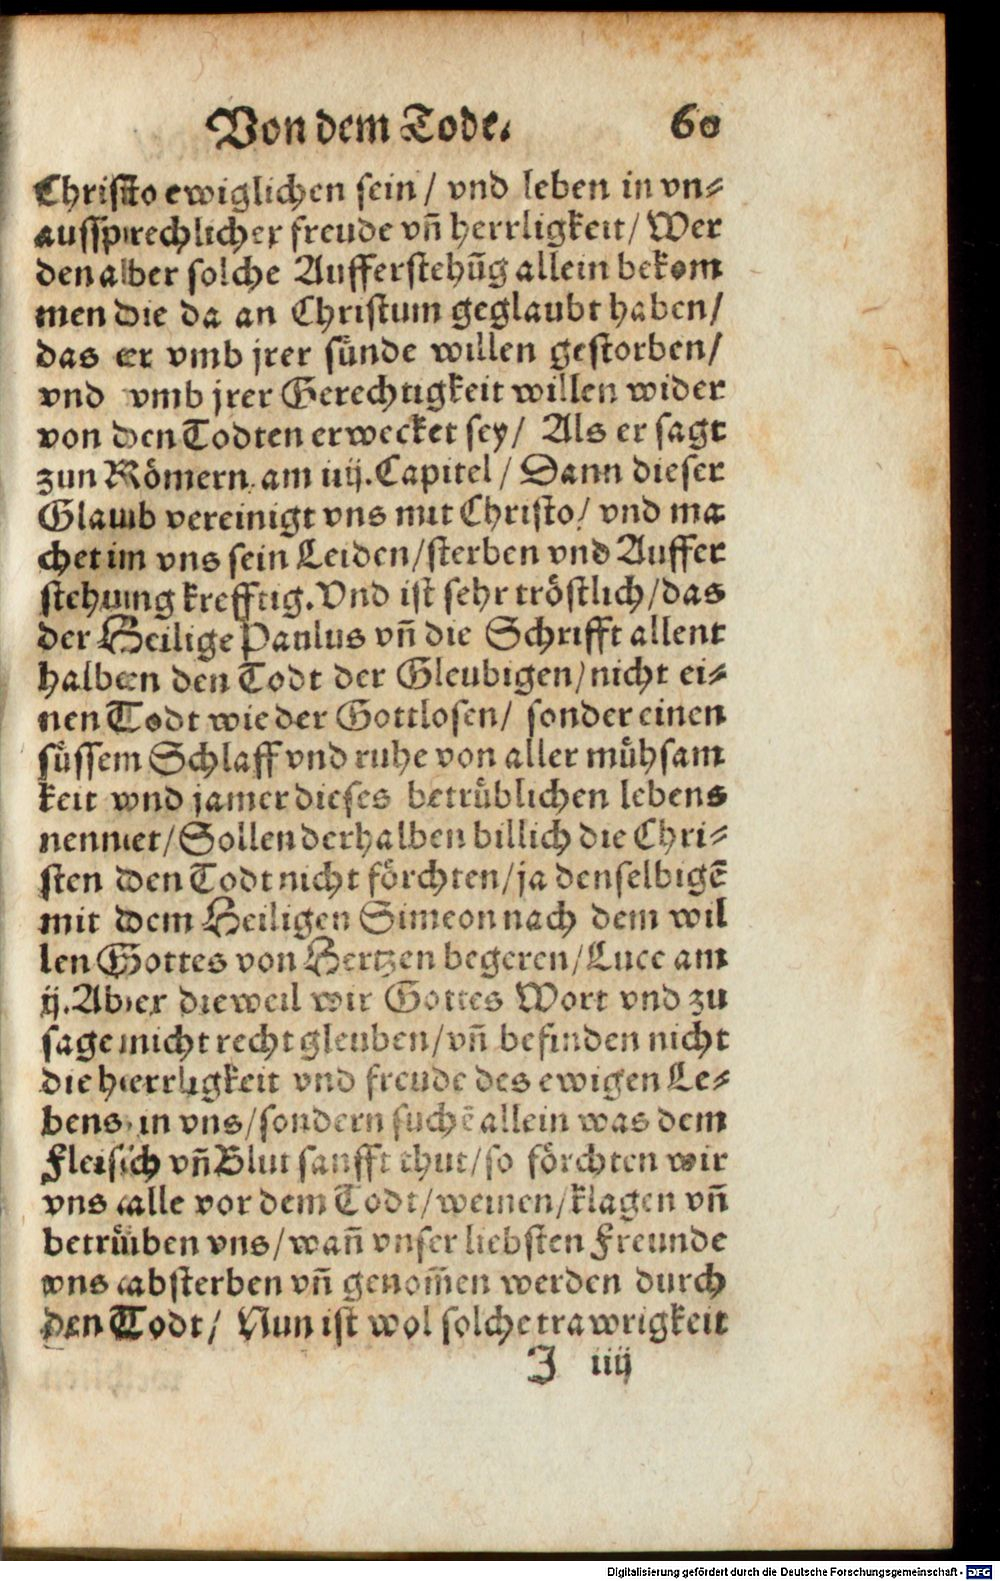 Von dem Tode. 60
Christo ewiglichen sein / vnd leben in vn⸗
aussprechlicher freude vñ herrligkeit / Wer
den aber solche Aufferstehũg allein bekom
men die da an Christum geglaubt haben /
das er vmb jrer sünde willen gestorben /
vnd vmb jrer Gerechtigkeit willen wider
von den Todten erwecket sey / Als er sagt
zun Römern am iiij. Capitel / Dann dieser
Glaub vereinigt vns mit Christo / vnd ma
chet im vns sein Leiden / sterben vnd Auffer
stehung krefftig. Vnd ist sehr tröstlich / das
der Heilige Paulus vñ die Schrifft allent
halben den Todt der Gleubigen / nicht ei⸗
nen Todt wie der Gottlosen / sonder einen
süssem Schlaff vnd ruhe von aller mühsam
keit vnd jamer dieses betrüblichen lebens
nennet / Sollen derhalben billich die Chri⸗
sten den Todt nicht förchten / ja denselbigẽ
mit dem Heiligen Simeon nach dem wil
len Gottes von Hertzen begeren / Luce am
ij. Aber dieweil wir Gottes Wort vnd zu
sage nicht recht gleuben / vñ befinden nicht
die herrligkeit vnd freude des ewigen Le⸗
bens in vns / sondern suchẽ allein was dem
Fleisch vñ Blut sanfft thut / so förchten wir
vns alle vor dem Todt / weinen / klagen vñ
betrüben vns / wañ vnser liebsten Freunde
vns absterben vñ genom̃en werden durch
den Todt / Nun ist wol solche trawrigkeit
J iiij
Digitalisierung gefördert durch die Deutsche Forschungsgemeinschaft - DFG